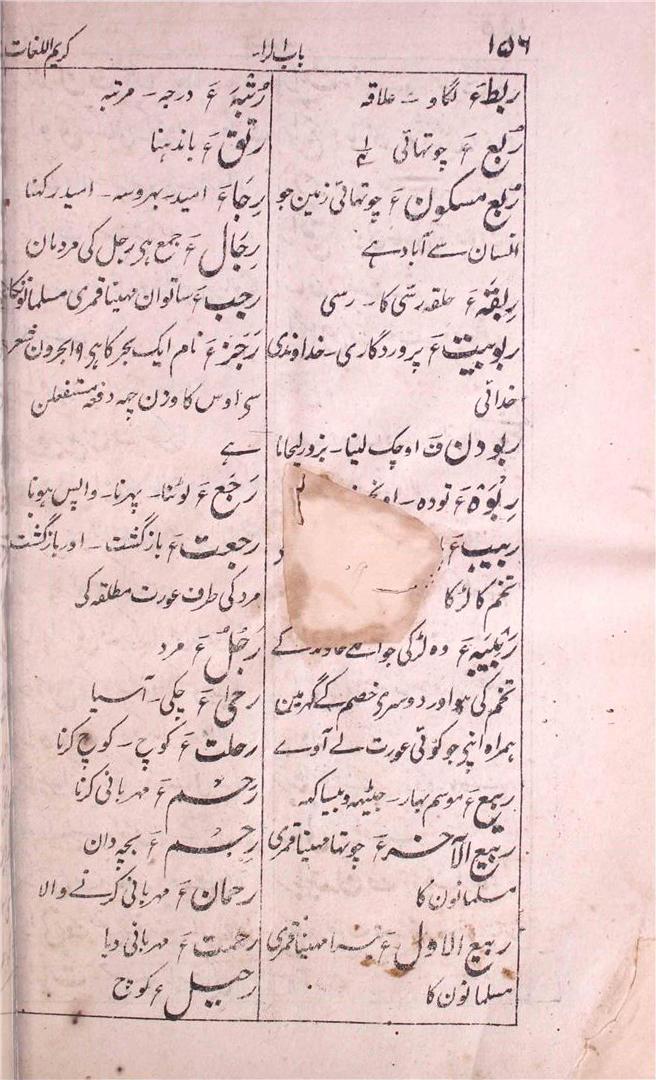 ۱۵۶
باب الرا۔
کریم اللغات
ربط ء لگاو ۔ علاقہ
رُبع ء چوتھائی ۱/۴
رُبع مسکون ء چوتھائی زمین جو
انسان سے آباد ہے
رِبقَہ ء حلقہ رسّی کا ۔ رسی
ربوبیت ء پروردگاری ۔ خداوندی
خدائی
ربودن ف اوچک لینا ۔ بزور لیجانا
رِبوَۃ ء تودہ ۔
ربیب ء
تخم کا لڑکا
رَبیبَہ ء وہ لڑکی جو کے
تخم کی ہو اور دوسری خصم کے گھر مین
ہمراہ اپنی جو کوئی عورت لے آوے
ربیع ء موسم بہار ۔ جیٹھہ و بیساکہہ
ربیع الآخر ء چوتھا مہینا قمری
مسلمانون کا
ربیع الاول ء مہینا قمری
مسلمانون کا
رُتبَہ ء درجہ ۔ مرتبہ
رتق ء باندہنا
رِجاء امید ۔ بہروسہ ۔ امید رکہنا
رِجال ء جمع ہی رجل کی مردمان
رجب ء ساتوان مہینا قمری مسلمانونکا
رَجَز ء نام ایک بحر کا ہی
سی اوس کا وزن چہہ دفعہ مستفعلن
ہے
رَجَع ء لوٹنا ۔ پہرنا ۔ واپس ہونا
رجعت ء بازگشت ۔ اور بازگشت
مرد کی طرف عورت مطلقہ کی
رَجُل ء مرد
رحیٰ ء چکی ۔ آسیا
رحلت ء کوچ ۔ کوچ کرنا
رَحْم ء مہربانی کرنا
رحِم ء بچہ دان
رحمان ء مہربانی کرنے والا
رحمت ء مہربانی دیا
رحیل ء کوچ